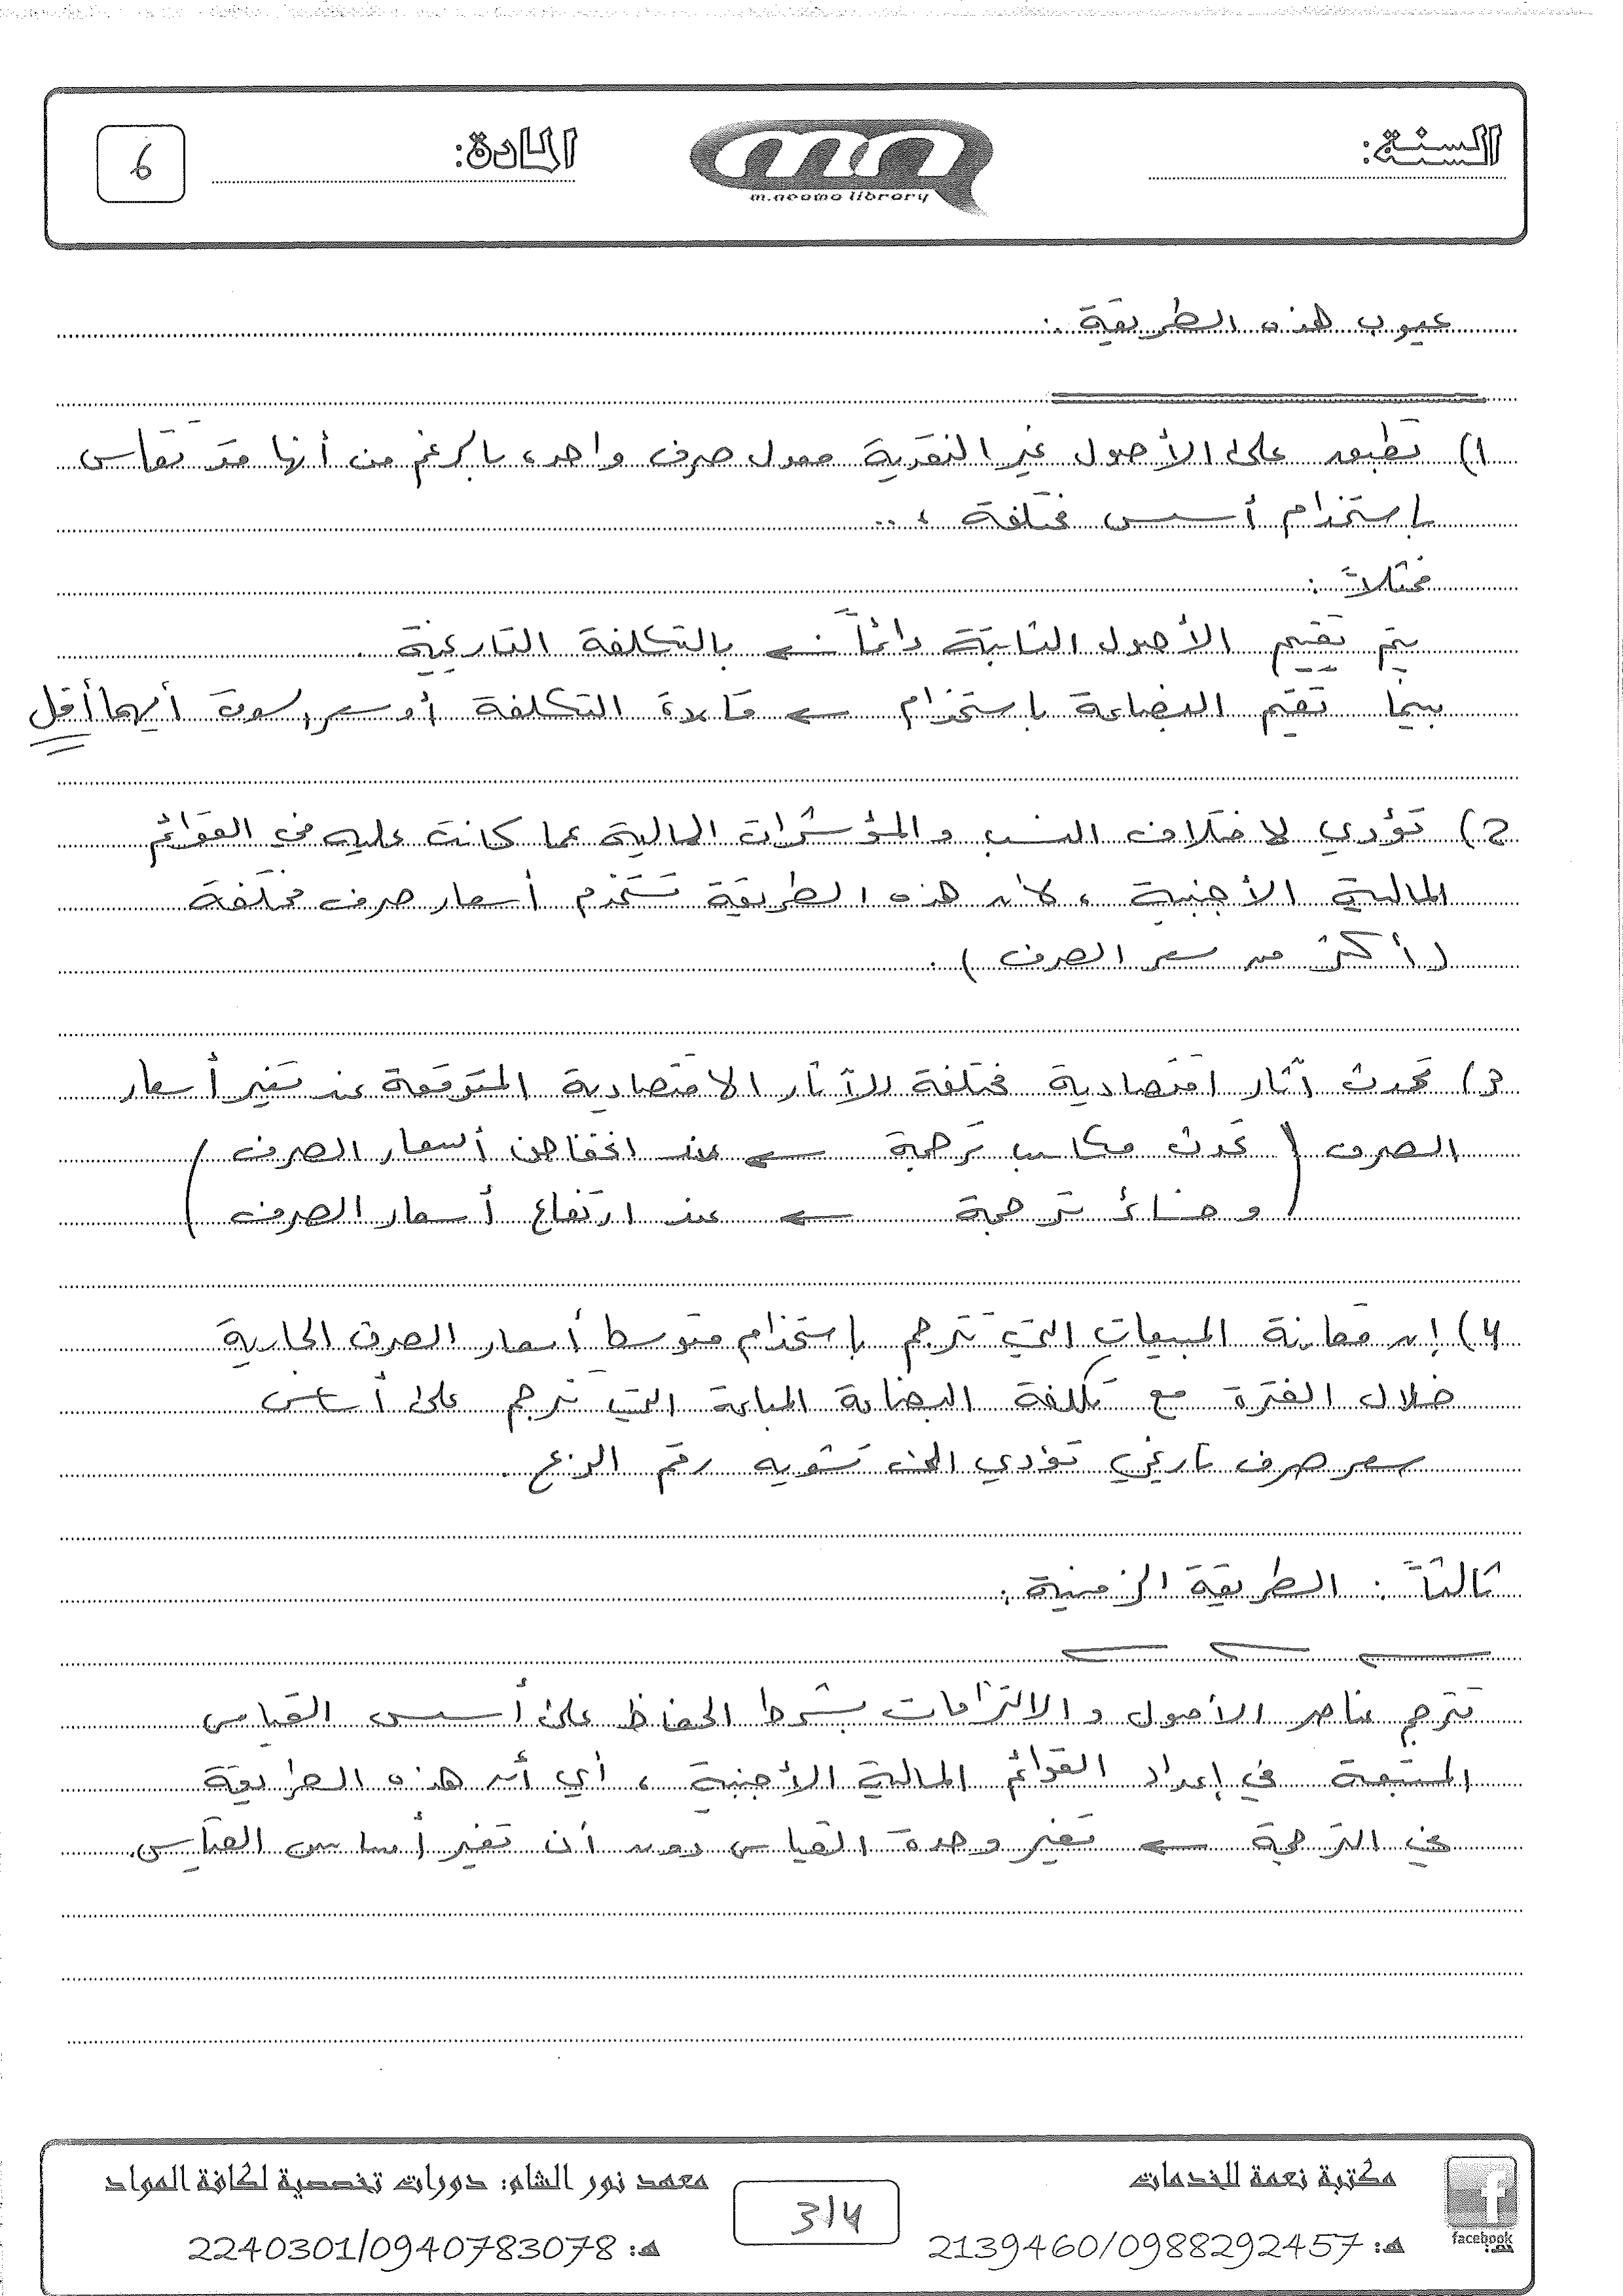 السنة:
m.neama library
المادة:
6
عيوب هذه الطريقة :
1) تطبق على الأصول غير النقدية معدل صرف واحد، بالرغم من أنها قد تقاس
بإستخدام أسس مختلفة ، ..
فمثلاً :
يتم تقييم الأصول الثابتة دائماً ← بالتكلفة التاريخية .
بينما تقيم البضاعة باستخدام ← قاعدة التكلفة أو سعر السوق أيهما أقل
2) تؤدي لاختلاف النسب والمؤشرات المالية عما كانت عليه في القوائم
المالية الأجنبية ، لأن هذه الطريقة تستخدم أسعار صرف مختلفة
( أكثر من سعر الصرف ) .
3) تحدث آثار اقتصادية مختلفة للآثار الاقتصادية المتوقعة عند تغير أسعار
الصرف ( تحدث مكاسب ترجمة ← عند انخفاض أسعار الصرف )
( وخسائر ترجمة ← عند ارتفاع أسعار الصرف )
4) إن مقارنة المبيعات التي تترجم بإستخدام متوسط أسعار الصرف الجارية
خلال الفترة مع تكلفة البضاعة المباعة التي تترجم على أساس
سعر صرف تاريخي تؤدي إلى تشويه رقم الربح .
ثالثاً : الطريقة الزمنية :
تترجم عناصر الأصول والالتزامات بشرط الحفاظ على أسس القياس
المتبعة في إعداد القوائم المالية الأجنبية ، أي أن هذه الطريقة
في الترجمة ← تغير وحدة القياس دون أن تغير أساس القياس.
مكتبة نعمة للخدمات
هـ: 2139460/0988292457
facebook
3/4
معهد نور الشام: دورات تخصصية لكافة المواد
هـ: 2240301/0940783078